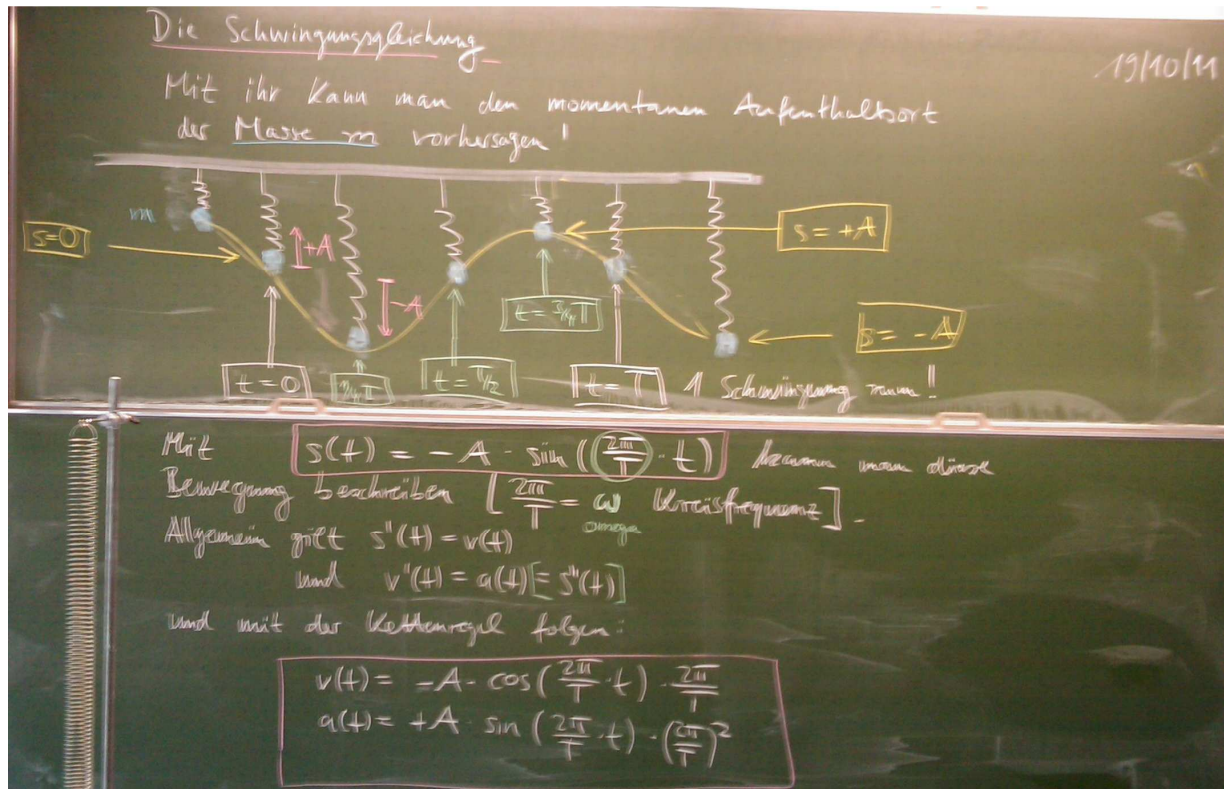 Die Schwingungsgleichung
19/10/11
Mit ihr kann man den momentanen Aufenthaltsort
der Masse m vorhersagen!
m
s=0
+A
-A
s=+A
s=-A
t=0
1/4T
t=T/2
t=3/4T
t=T
1 Schwingung rum!
Mit s(t) = -A · sin((2π/T) · t) kann man diese
Bewegung beschreiben [2π/T = ω Kreisfrequenz].
Omega
Allgemein gilt s'(t) = v(t)
und v'(t) = a(t) [= s''(t)]
und mit der Kettenregel folgen:
v(t) = -A · cos(2π/T · t) · 2π/T
a(t) = +A · sin(2π/T · t) · (2π/T)²